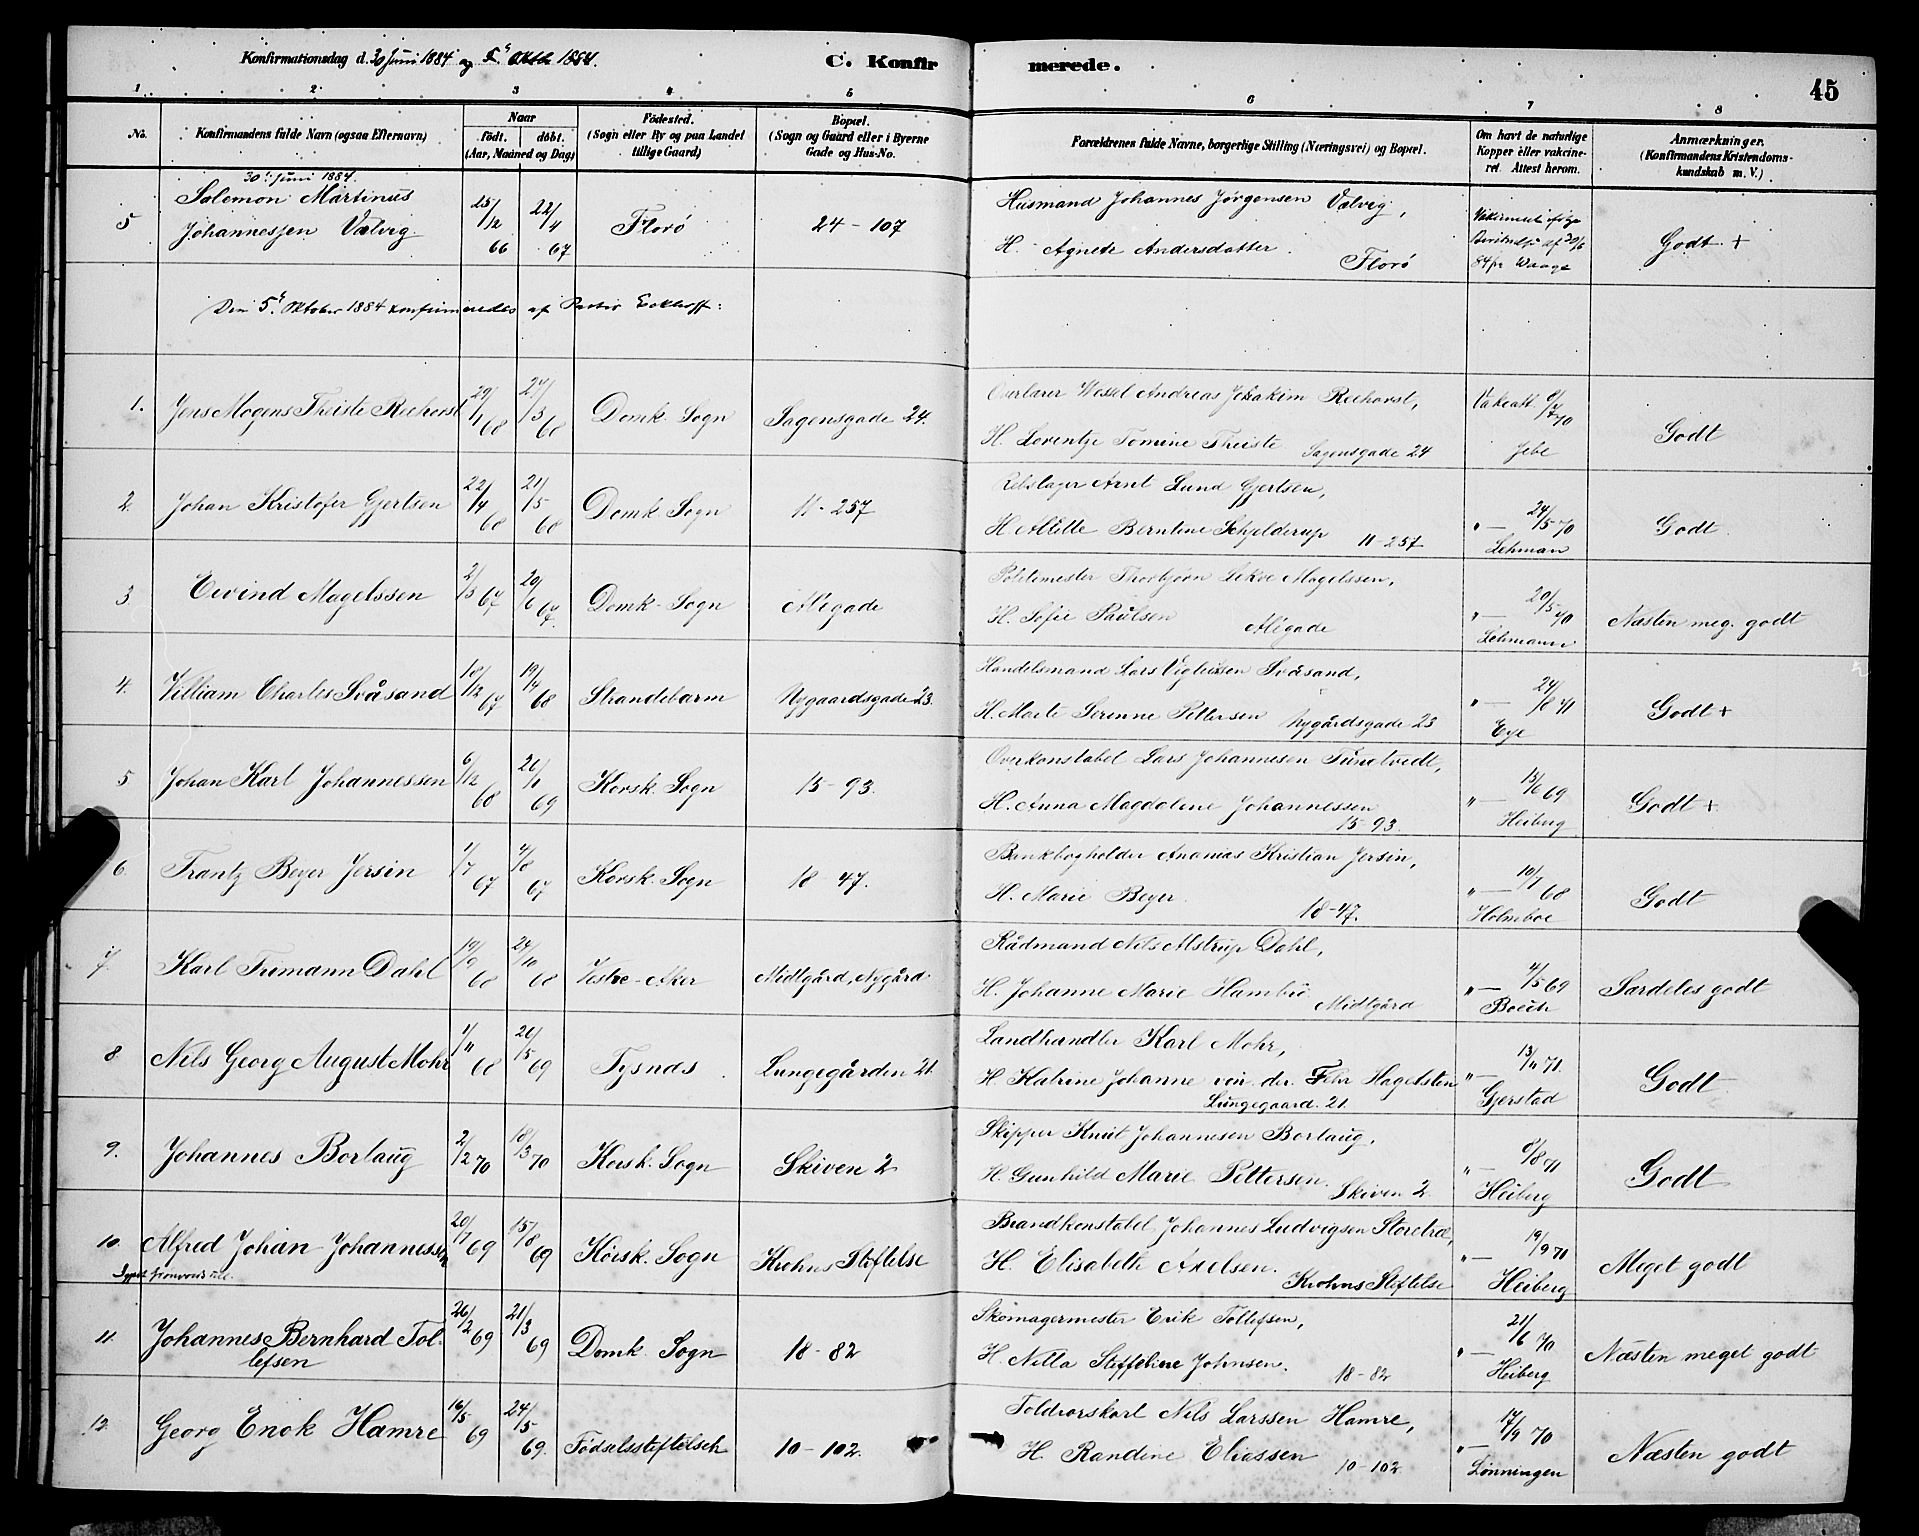 Konfirmationsdag d. 30 Juni 1884 og 5t Oktb 1884.
C. Konfirmerede.
45
1. 2 3 4 5 6 7 8
No.
Konfirmandens fulde Navn (ogsaa Efternavn)
Naar
födt. döbt.
(Aar, Maaned og Dag)
Födested.
(Sogn eller By og paa Landet
tillige Gaard)
Bopæl.
(Sogn og Gaard eller i Byerne
Gade og Hus-No.
Forældrenes fulde Navne, borgerlige Stilling (Næringsvei) og Bopæl.
Om havt de naturlige
Kopper eller vakcine-
ret. Attest herom.
Anmærkninger.
(Konfirmandens Kristendoms-
kundskab m. V.)
30t Juni 1884.
5 Salomon Martinus
Johannessen Valvig
25/12 66 22/4 67 Florö 24-107
Husmand Johannes Jörgensen Valvig,
H. Agnete Andersdatter. Florö
84 Waage
Godt +
Den 5t Oktober 1884 konfirmeredes af Pastor Eckhoff:
1. Jens Mogens Theiste Reehorst 29/1 68 27/3 68 Domk. Sogn Sagensgade 24.
Overlærer Wessel Andreas Joakim Reehorst,
H. Lorentze Tomine Theiste Sagensgade 24
Vakcatt. 6/7 70
Jebe
Godt
2. Johan Kristofer Gjertsen 22/4 68 21/5 68 Domk. Sogn 11-257
Rebslager Arnt Lund Gjertsen,
H. Alette Berntine Schjelderup 11-257
"— 24/5 70
Lehman
Godt.
3. Eivind Magelssen 2/3 67 20/6 67. Domk. Sogn Allégade
Politimester Thorbjörn Lekve Magelssen,
H. Sofie Paulsen Allégade
"— 20/5 70
Lehmann
Næsten meg. godt
4. Villiam Charles Svåsand 18/12 67 19/4 68 Strandebarm Nygaardsgade 23.
Handelsmand Lars Vigleiksen Svåsand,
H. Marte Serenne Pettersen Nygårdsgade 23
"— 24/8 71
Eye
Godt +
5 Johan Karl Johannessen 6/12 68 21/1 69 Korsk. Sogn 15-93.
Overkonstabel Lars Johannesen Tunetvedt,
H. Anna Magdalene Johannessen
15-93.
"— 13/6 69
Heiberg
Godt +
6. Frantz Beyer Jersin 1/7 67 4/8 67 Korsk. Sogn 18-47.
Bankbogholder Ananias Kristian Jersin,
H. Marie Beyer. 18-47.
"— 10/7 68
Holmboe
Godt
7. Karl Frimann Dahl 19/9 68 24/10 68 Vestre-Aker Midtgård, Nygård
Rådmand Nils Alstrup Dahl,
H. Johanne Marie Hambro Midtgård
"— 4/5 69
Boeck
Særdeles godt
8 Nils Georg August Mohr 1/11 68 21/5 69 Tysnæs Lungegården 21.
Landhandler Karl Mohr,
H. Katrine Johanne von der Fehr Hagelsten
Lungegaard. 21.
"— 13/11 71.
Gjerstad
Godt
9. Johannes Borlaug 2/2 70 18/3 70 Korsk. Sogn Skiven 2
Skipper Knut Johannesen Borlaug,
H. Gunhild Marie Pettersen. Skiven 2.
"— 8/8 71
Heiberg
Godt
10. Alfred Johan Johannessen 20/7 69 15/8 69 Korsk. Sogn Krohns Stiftelse
Brandkonstabel Johannes Ludvigsen Storetræ,
H. Elisabeth Axelsen. Krohns Stiftelse
"— 19/9 71
Heiberg
Meget godt
11. Johannes Bernhard Tol-
lefsen
26/2 69 21/3 69 Domk. Sogn 18-82
Skomagermester Erik Tollefsen,
H. Nilla Steffeline Johnsen. 18-82
"— 21/6 70
Heiberg
Næsten meget godt
12. Georg Enok Hamre 16/5 69 24/5 69. Födselsstiftelsen 10-102.
Toldrorskarl Nils Larssen Hamre,
H. Randine Eliassen 10-102.
"— 17/9 70
Lönningen
Næsten godt